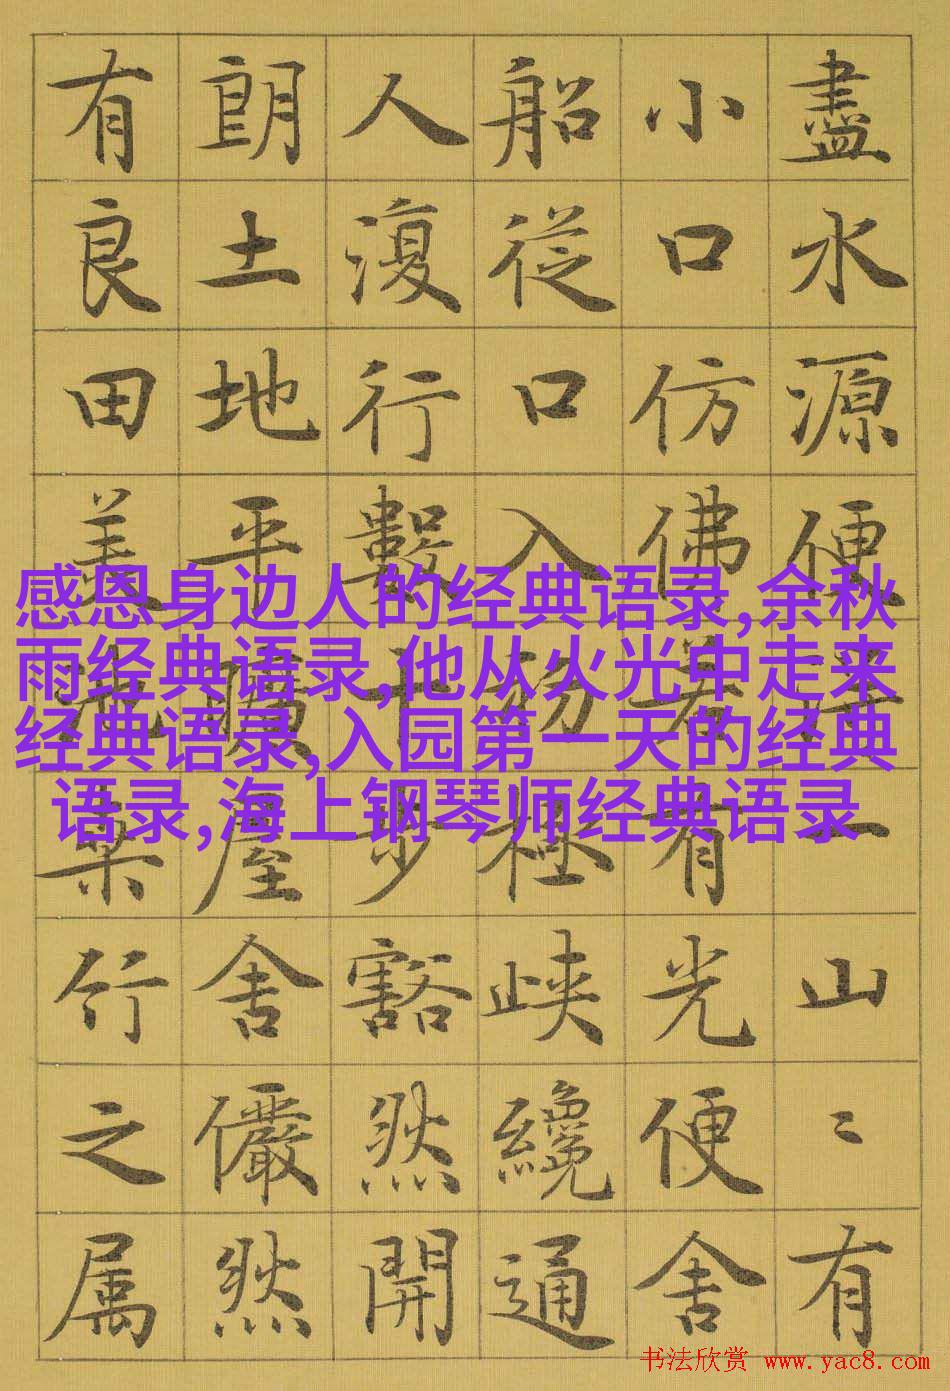 盡水源便得一山〻有
小口仿佛若有光便舍
船從口入初極峽纔通
人復行數十步豁然開
朗土地平曠屋舍儼然
有良田美池桑竹之属
感恩身边人的经典语录,余秋
雨经典语录,他从火光中走来
经典语录,入园第一天的经典
语录,海上钢琴师经典语录
书法欣赏 www.yac8.com